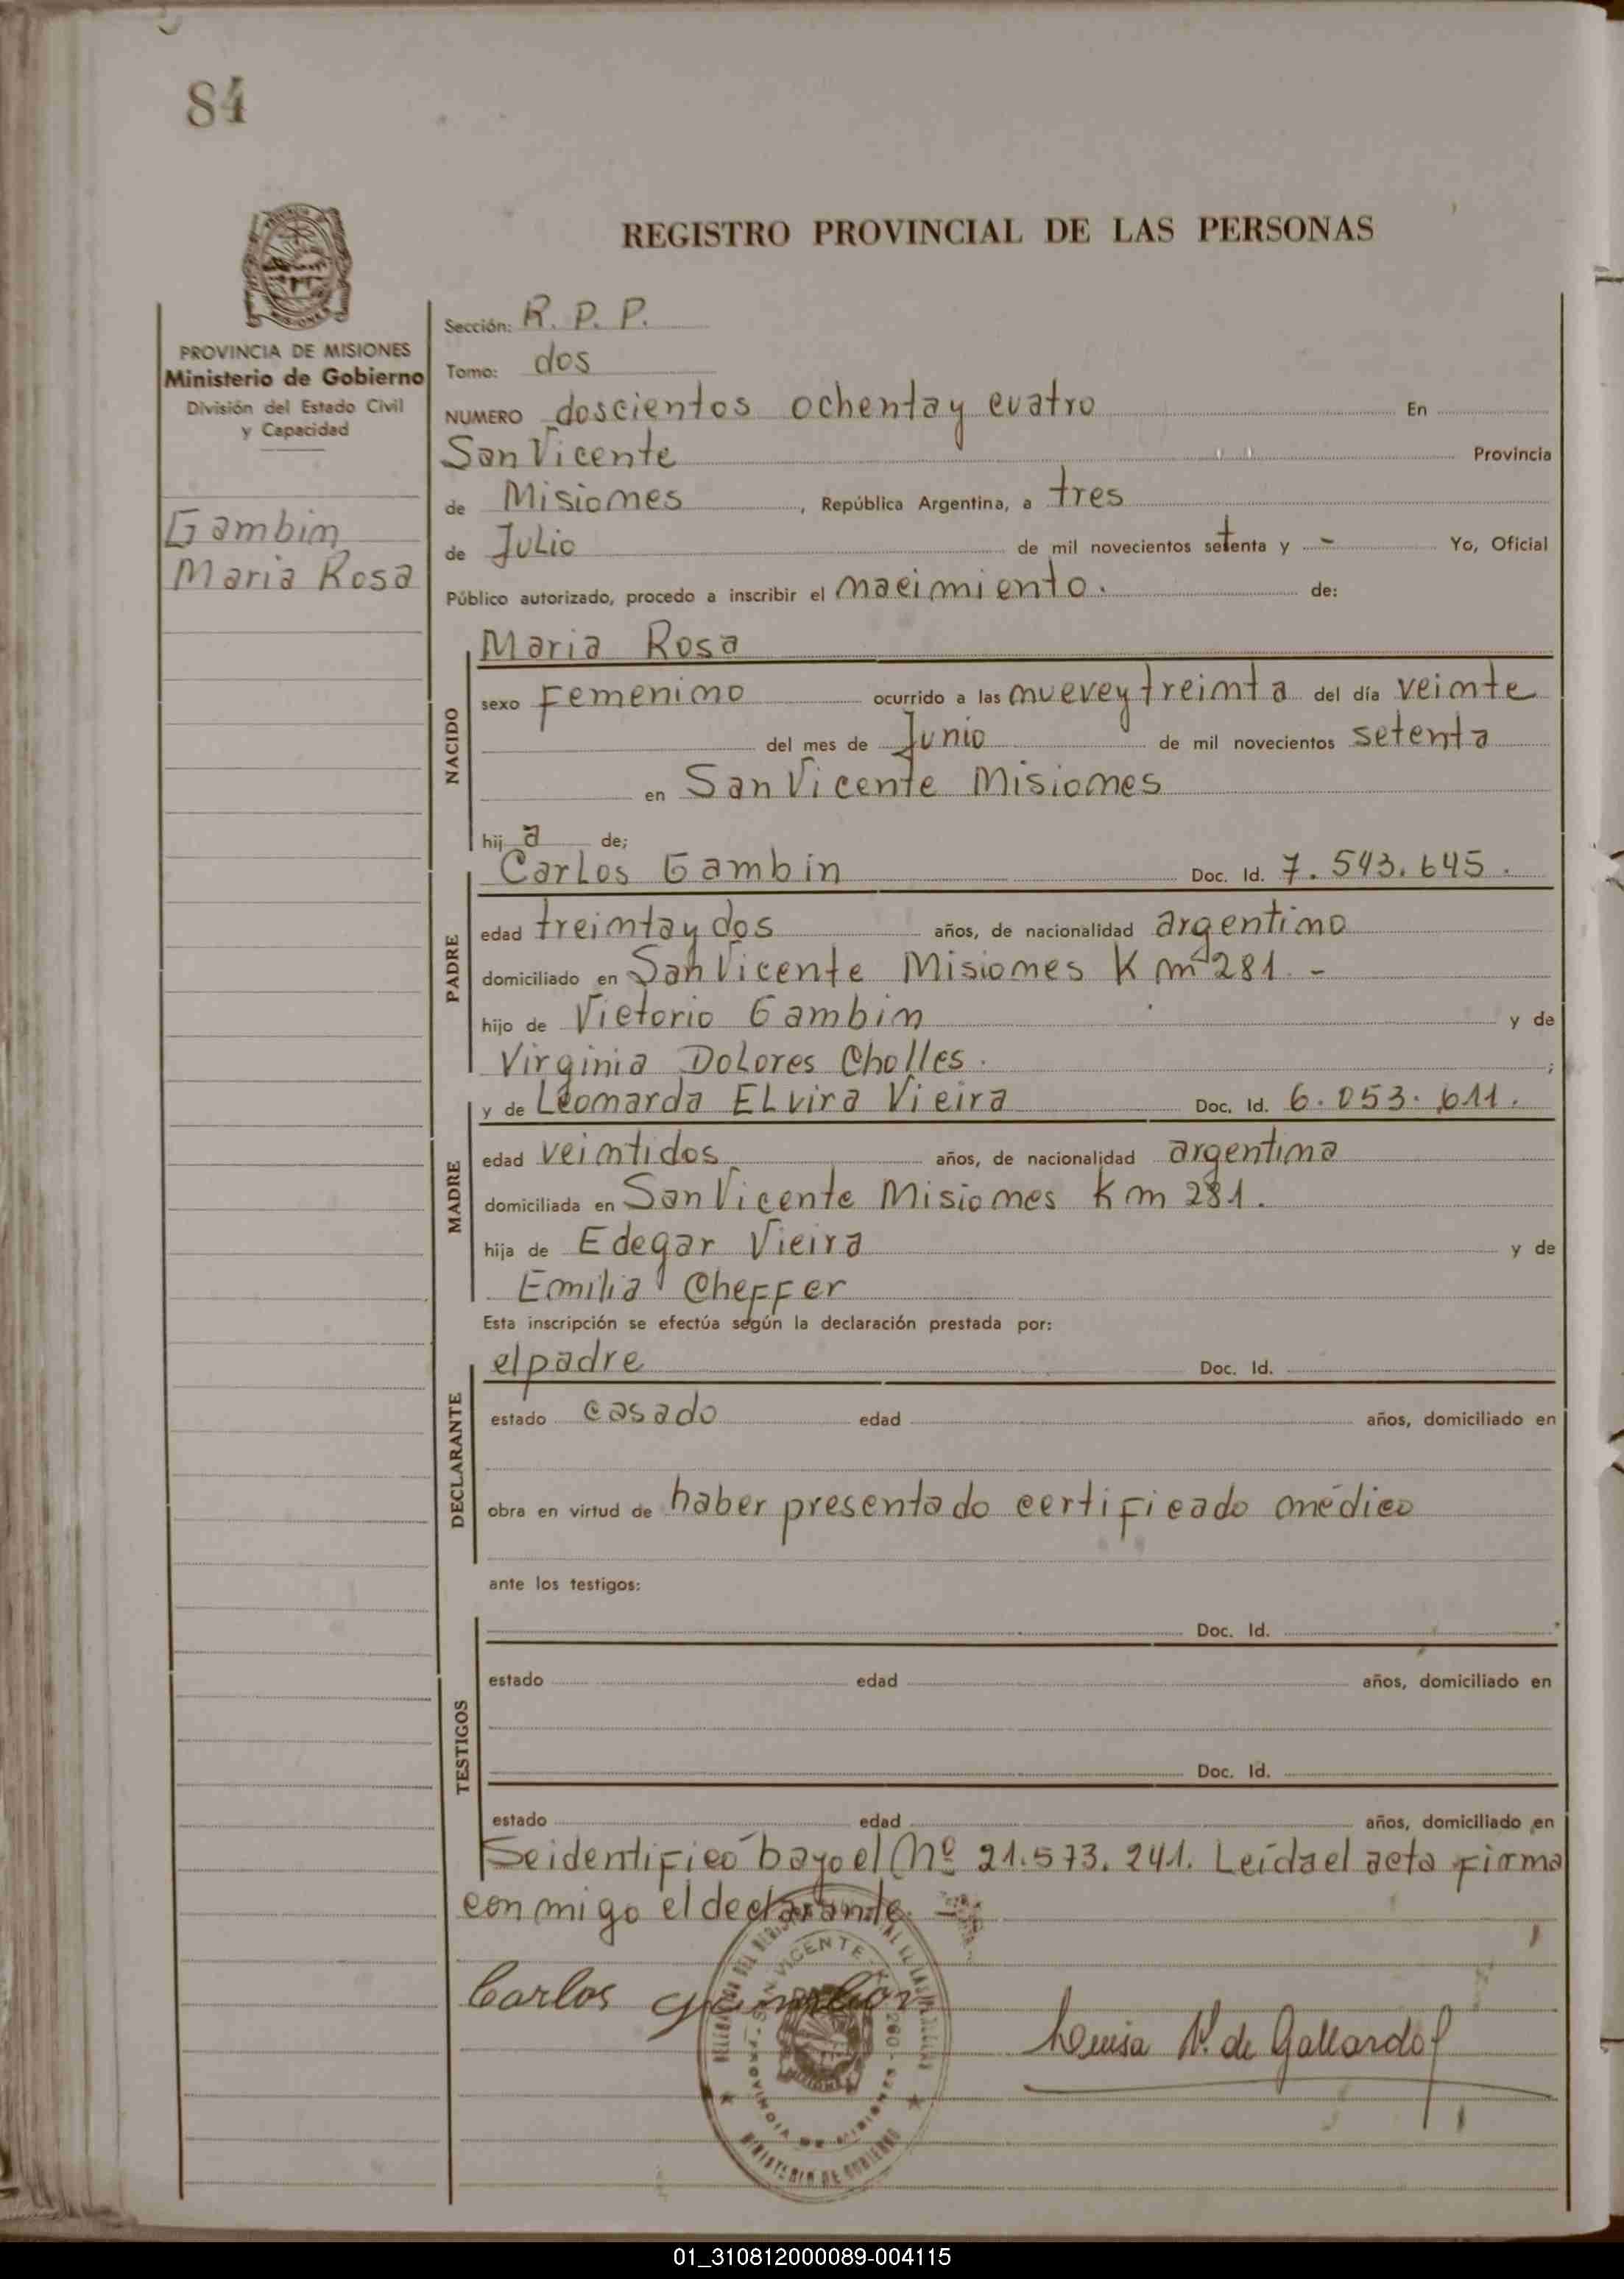 84
REGISTRO PROVINCIAL DE LAS PERSONAS
PROVINCIA DE MISIONES
Ministerio de Gobierno
División del Estado Civil
y Capacidad
Gambin
Maria Rosa
Sección: R. P. P.
Tomo: dos
NUMERO doscientos ochenta y cuatro En
San Vicente Provincia
de Misiones, República Argentina, a tres
de Julio de mil novecientos setenta y - Yo, Oficial
Público autorizado, procedo a inscribir el nacimiento. de:
NACIDO
Maria Rosa
sexo Femenino ocurrido a las nueve y treinta del día veinte
del mes de Junio de mil novecientos setenta
en San Vicente Misiones
hij a de;
PADRE
Carlos Gambin Doc. Id. 7.543.645.
edad treinta y dos años, de nacionalidad argentino
domiciliado en San Vicente Misiones Km 281. -
hijo de Victorio Gambin y de
Virginia Dolores Cholles. ;
MADRE
y de Leonarda Elvira Vieira Doc. Id. 6.053.611.
edad veintidos años, de nacionalidad argentina
domiciliada en San Vicente Misiones Km 281.
hija de Edegar Vieira y de
Emilia Cheffer
Esta inscripción se efectúa según la declaración prestada por:
DECLARANTE
el padre Doc. Id.
estado casado edad años, domiciliado en
obra en virtud de haber presentado certificado médico
ante los testigos:
TESTIGOS
Doc. Id.
estado edad años, domiciliado en
Doc. Id.
estado edad años, domiciliado en
Se identificó bayo el Nº 21.573.241. Leída el acta firma
conmigo el declarante.
Carlos Gambin
Luisa N. de Gallardo
SAN VICENTE
PROVINCIA DE MISIONES
MINISTERIO DE GOBIERNO
01_310812000089-004115